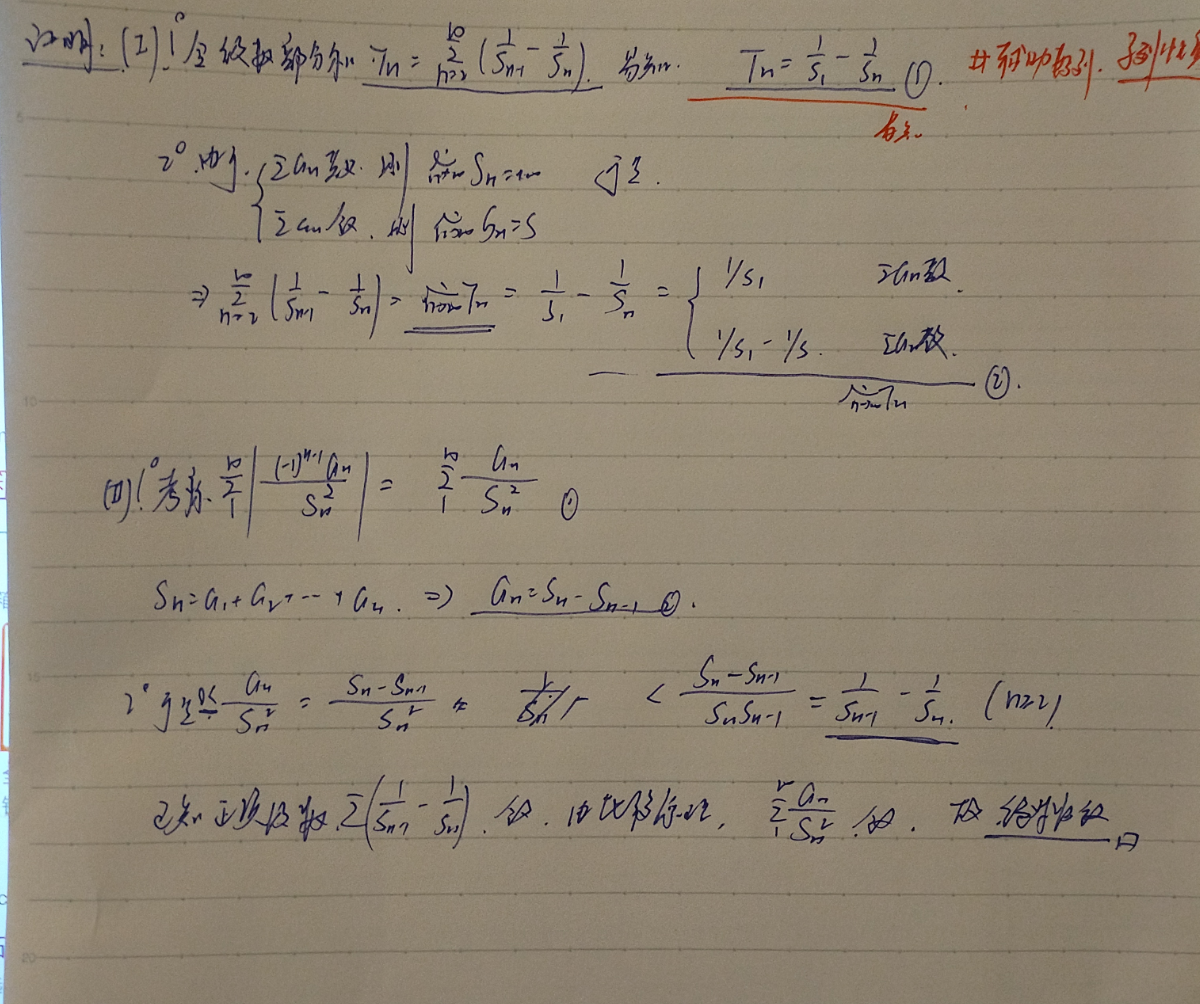 证明: (I) 1° 令级数部分和 Tn = ∑_{n=2}^{∞} (1/S_{n-1} - 1/S_n). 易知. Tn = 1/S_1 - 1/S_n ①. #辅助数列.
易知.
2°. 由于. { ∑an 散. 则 lim_{n→∞} Sn = +∞ 于是.
∑an 敛. 则 lim_{n→∞} Sn = S
⇒ ∑_{n=2}^{∞} (1/S_{n-1} - 1/S_n) = lim_{n→∞} Tn = 1/S_1 - 1/S_n = { 1/S_1 ∑an散.
1/S_1 - 1/S. ∑an敛. ②.
lim_{n→∞} Tn
(II) 1° 考察. ∑_{1}^{∞} | (-1)^{n-1} an / Sn^2 | = ∑_{1}^{∞} an / Sn^2 ①
Sn = a1 + a2 + ⋯ + an. ⇒ an = Sn - S_{n-1} ②.
2° 于是 0≤ an / Sn^2 = (Sn - S_{n-1}) / Sn^2 < (Sn - S_{n-1}) / (Sn S_{n-1}) = 1/S_{n-1} - 1/Sn. (n≥2)
已知正项级数 ∑(1/S_{n-1} - 1/Sn). 敛. 由比较原理, ∑_{1}^{∞} an / Sn^2 敛. 故 绝对收敛 □